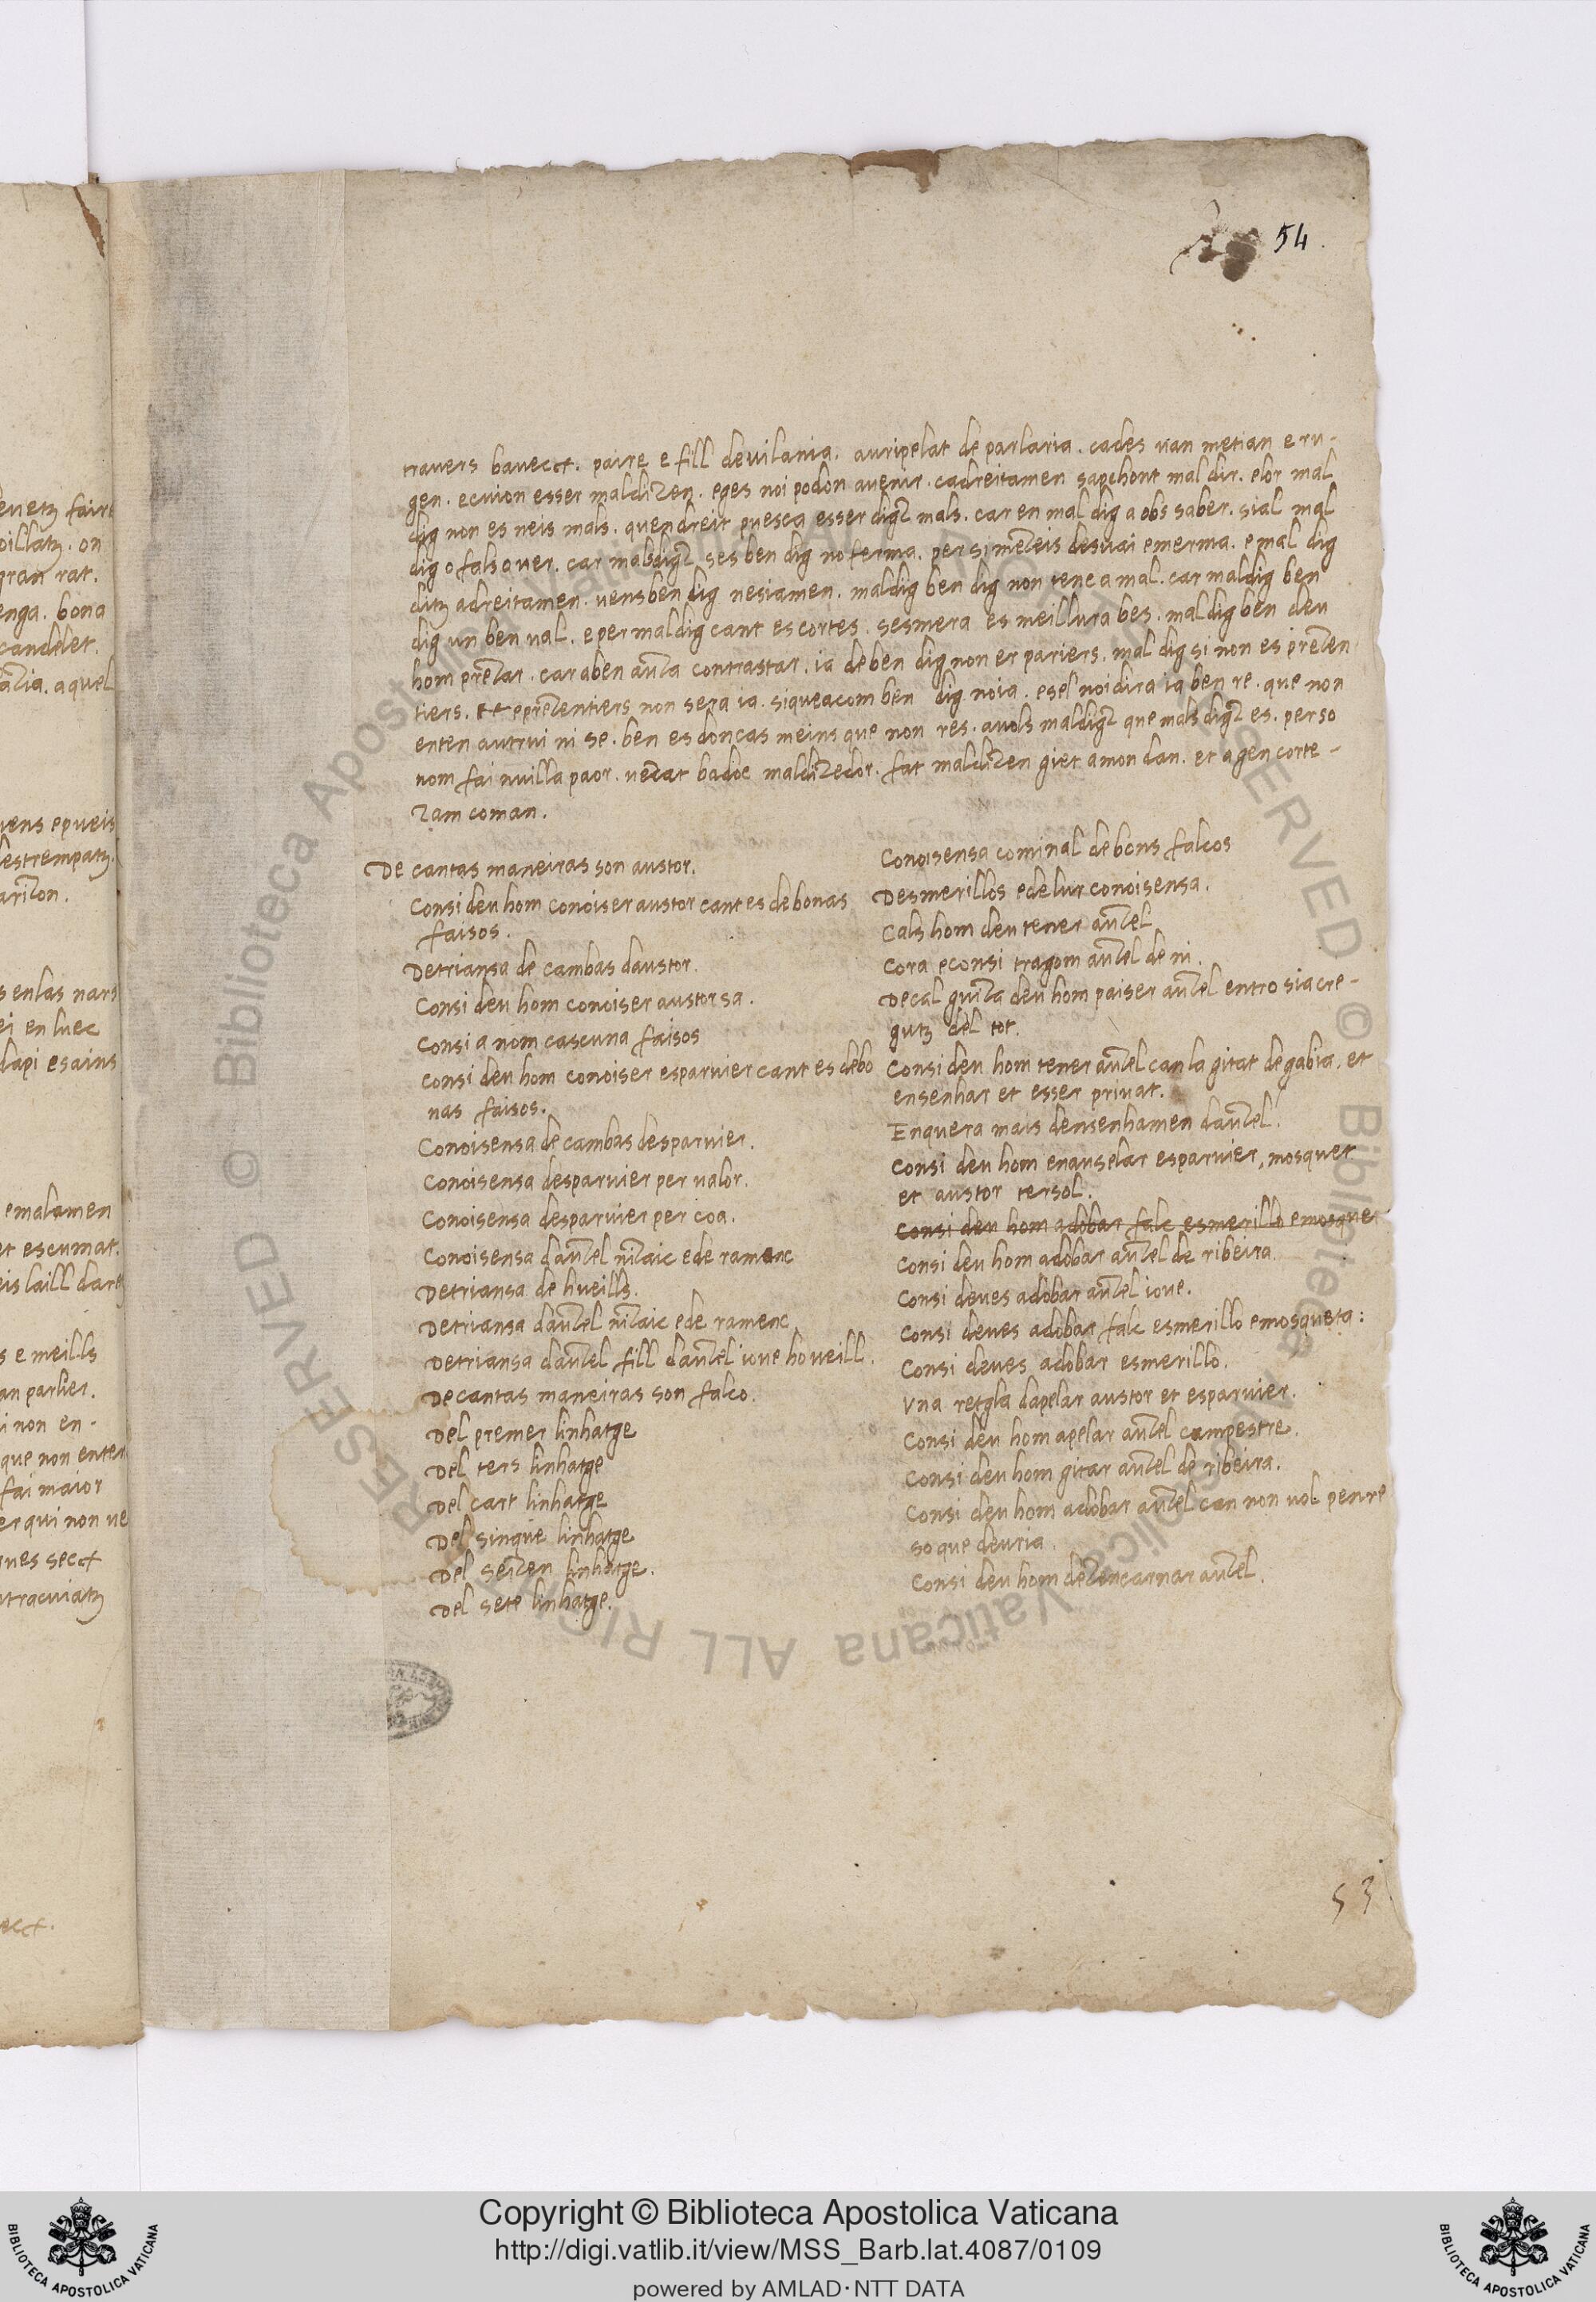 54.
travers bavecct. paire e fill de vilania. auripelat de parlaria. cades van metian e ru-
gen. ecuion esser maldizen. eges noi podon avenir. cadreitamen sapchont mal dir. elor mal
dig non es neis mals. quendreit puesca esser digz mals. car en mal dig a obs saber. sial mal
dig o fals o ver. car mals digz ses ben dig no ferma. per si meteis desvai e merma. e mal dig
ditz adreitamen. vens ben dig nesiamen. mal dig ben dig non tenc a mal. car mal dig ben
dig un ben val. e per mal dig cant es cortes. sesmera es meillura bes. mal dig ben deu
hom prezar. car a ben auza contrastar. ia de ben dig non er pariers. mal dig si non es prezen
tiers. et e prezentiers non sera ia. siqueacom ben dig noia. e sel noi dira ia ben re. que non
enten autrui ni se. ben es doncas meins que non res. avols maldigz que mals digz es. per so
nom fai nuilla paor. vezat badoc maldizedor. fat maldizen giet a mon dan. et a gen corte-
zam coman.
De cantas maneiras son austor.
Consi deu hom conoiser austor cant es de bonas
faisos.
Detriansa de cambas daustor.
Consi deu hom conoiser austor sa.
Consi a nom cascuna faisos
Consi deu hom conoiser esparvier cant es de bo
nas faisos.
Conoisensa de cambas desparvier.
Conoisensa desparvier per valor.
Conoisensa desparvier per coa.
Conoisensa dauzel nizaic e de ramenc
Detriansa de hueills.
Detriansa dauzel nizaic e de ramenc
Detriansa dauzel fill dauzel iove ho veill.
De cantas maneiras son falco.
Del premer linhatge
Del ters linhatge
Del cart linhatge
Del sinque linhatge
Del seizen linhatge.
Del sete linhatge.
Conoisensa cominal de bons falcos
Desmerillos e de lur conoisensa.
Cals hom deu tener auzel
Cora e consi tragom auzel de ni.
De cal guiza deu hom paiser auzel entro sia cre-
gutz del tot.
Consi deu hom tener auzel can la gitat de gabia. et
ensenhar et esser privat.
Enquera mais densenhamen dauzel.
Consi deu hom enauselar esparvier, mosquet
et austor tersol.
Consi deu hom adobar falc esmerillo e mosquet
Consi deu hom adobar auzel de ribeira.
Consi deves adobar auzel iove.
Consi deves adobar falc esmerillo e mosqueta:
Consi deves adobar esmerillo.
Una retgla dapelar austor et esparvier.
Consi deu hom apelar auzel campestre.
Consi deu hom gitar auzel de ribeira.
Consi deu hom adobar auzel can non vol penre
so que deuria.
Consi deu hom dezencarnar auzel.
53
Copyright © Biblioteca Apostolica Vaticana
http://digi.vatlib.it/view/MSS_Barb.lat.4087/0109
powered by AMLAD·NTT DATA